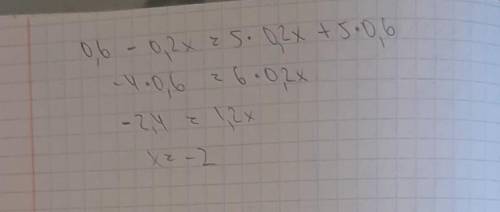 0,6 - 0,2x = 5 · 0,2x + 5 · 0,6
-4 · 0,6 = 6 · 0,2x
-2,4 = 1,2x
x = -2